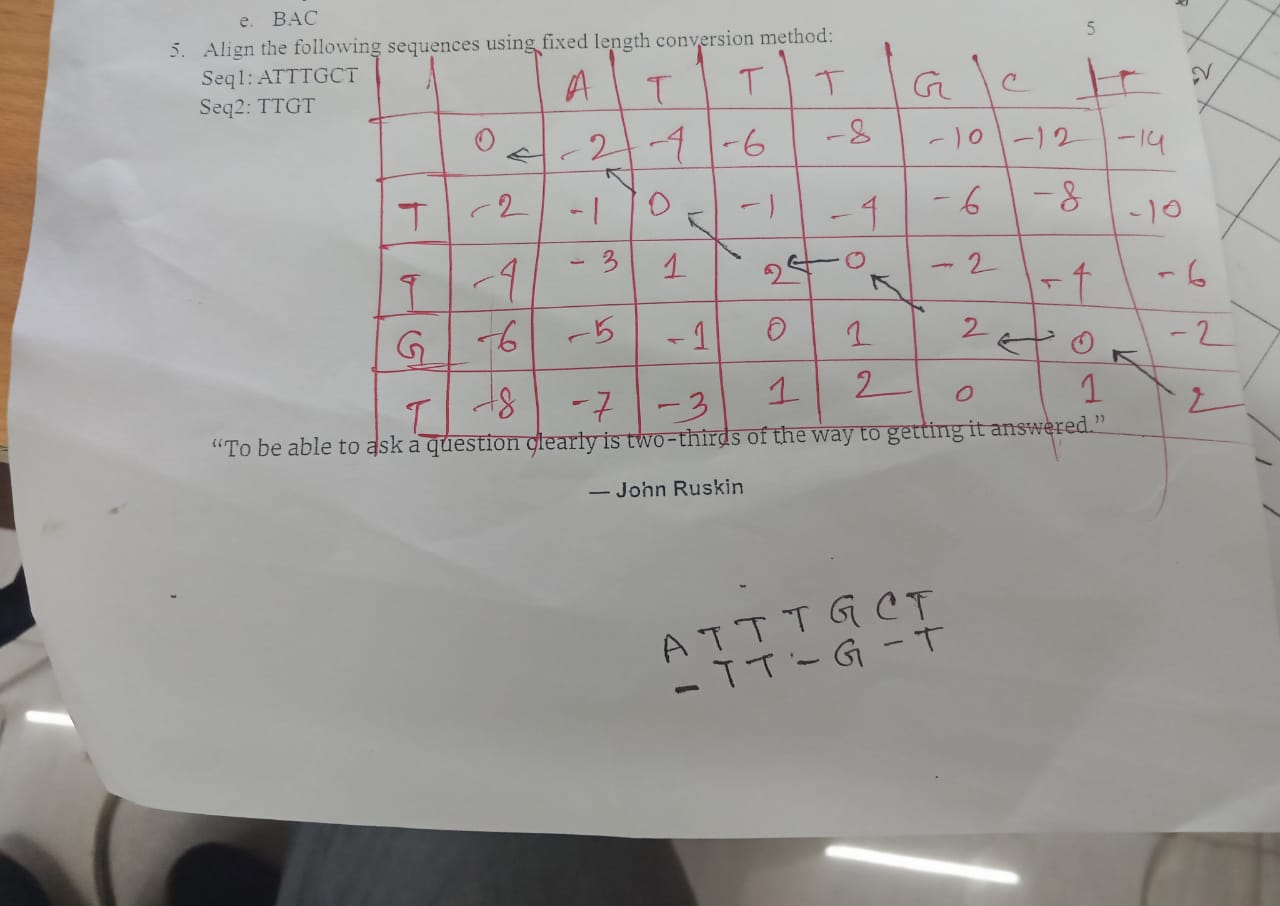 e. BAC
5
5. Align the following sequences using fixed length conversion method:
Seq1: ATTTGCT
Seq2: TTGT
A T T T G C T
0 -2 -4 -6 -8 -10 -12 -14
T -2 -1 0 -1 -4 -6 -8 -10
T -4 -3 1 2 0 -2 -4 -6
G -6 -5 -1 0 1 2 0 -2
T -8 -7 -3 1 2 0 1 2
“To be able to ask a question clearly is two-thirds of the way to getting it answered.”
— John Ruskin
A T T T G C T
- T T - G - T